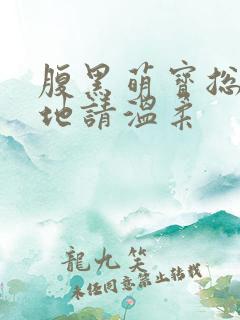 腹黑萌寶總
地請溫柔
龍九笑
未经同意禁止转载